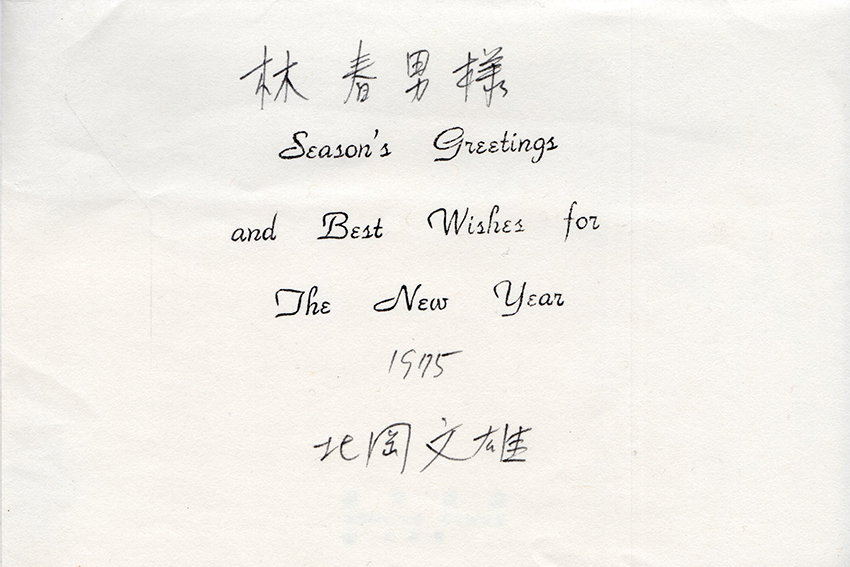 林春男様
Season's Greetings
and Best Wishes for
The New Year
1975
北岡文雄